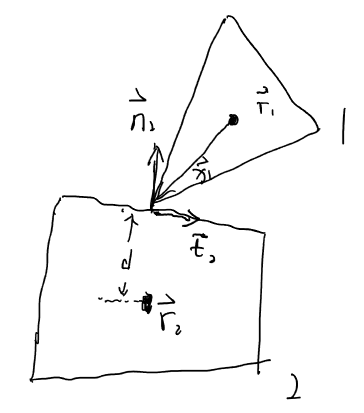 r⃗₁
1
n⃗₂
x⃗₁
t⃗₂
d
r⃗₂
2